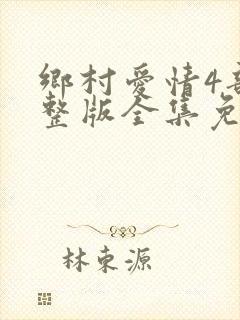 鄉村愛情4
整版全集免
林東源